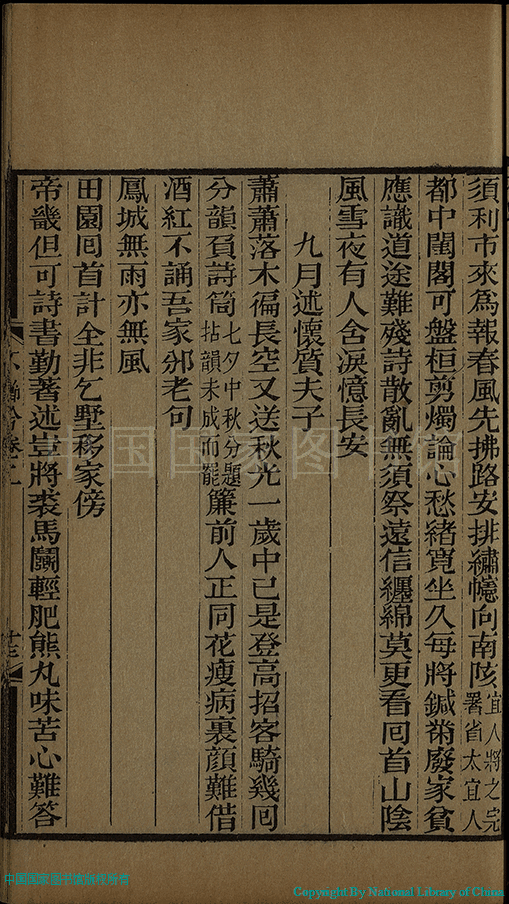 須利市來爲報春風先拂路安排繡幰向南陔宜人將之完署省太宜人
都中閨閣可盤桓剪燭論心愁緒寬坐久每將鍼黹廢家貧
應識道途難殘詩散亂無須祭遠信纏綿莫更看囘首山陰
風雪夜有人含淚憶長安
九月述懷質夫子
蕭蕭落木徧長空又送秋光一歲中已是登高招客騎幾囘
分韻負詩筒七夕中秋分題拈韻未成而罷簾前人正同花瘦病裏顔難借
酒紅不誦吾家邠老句
鳳城無雨亦無風
田園囘首計全非乞墅移家傍
帝畿但可詩書勤著述豈將裘馬鬭輕肥熊丸味苦心難答
不櫛吟卷二
十三
中国国家图书馆
Copyright By National Library of China